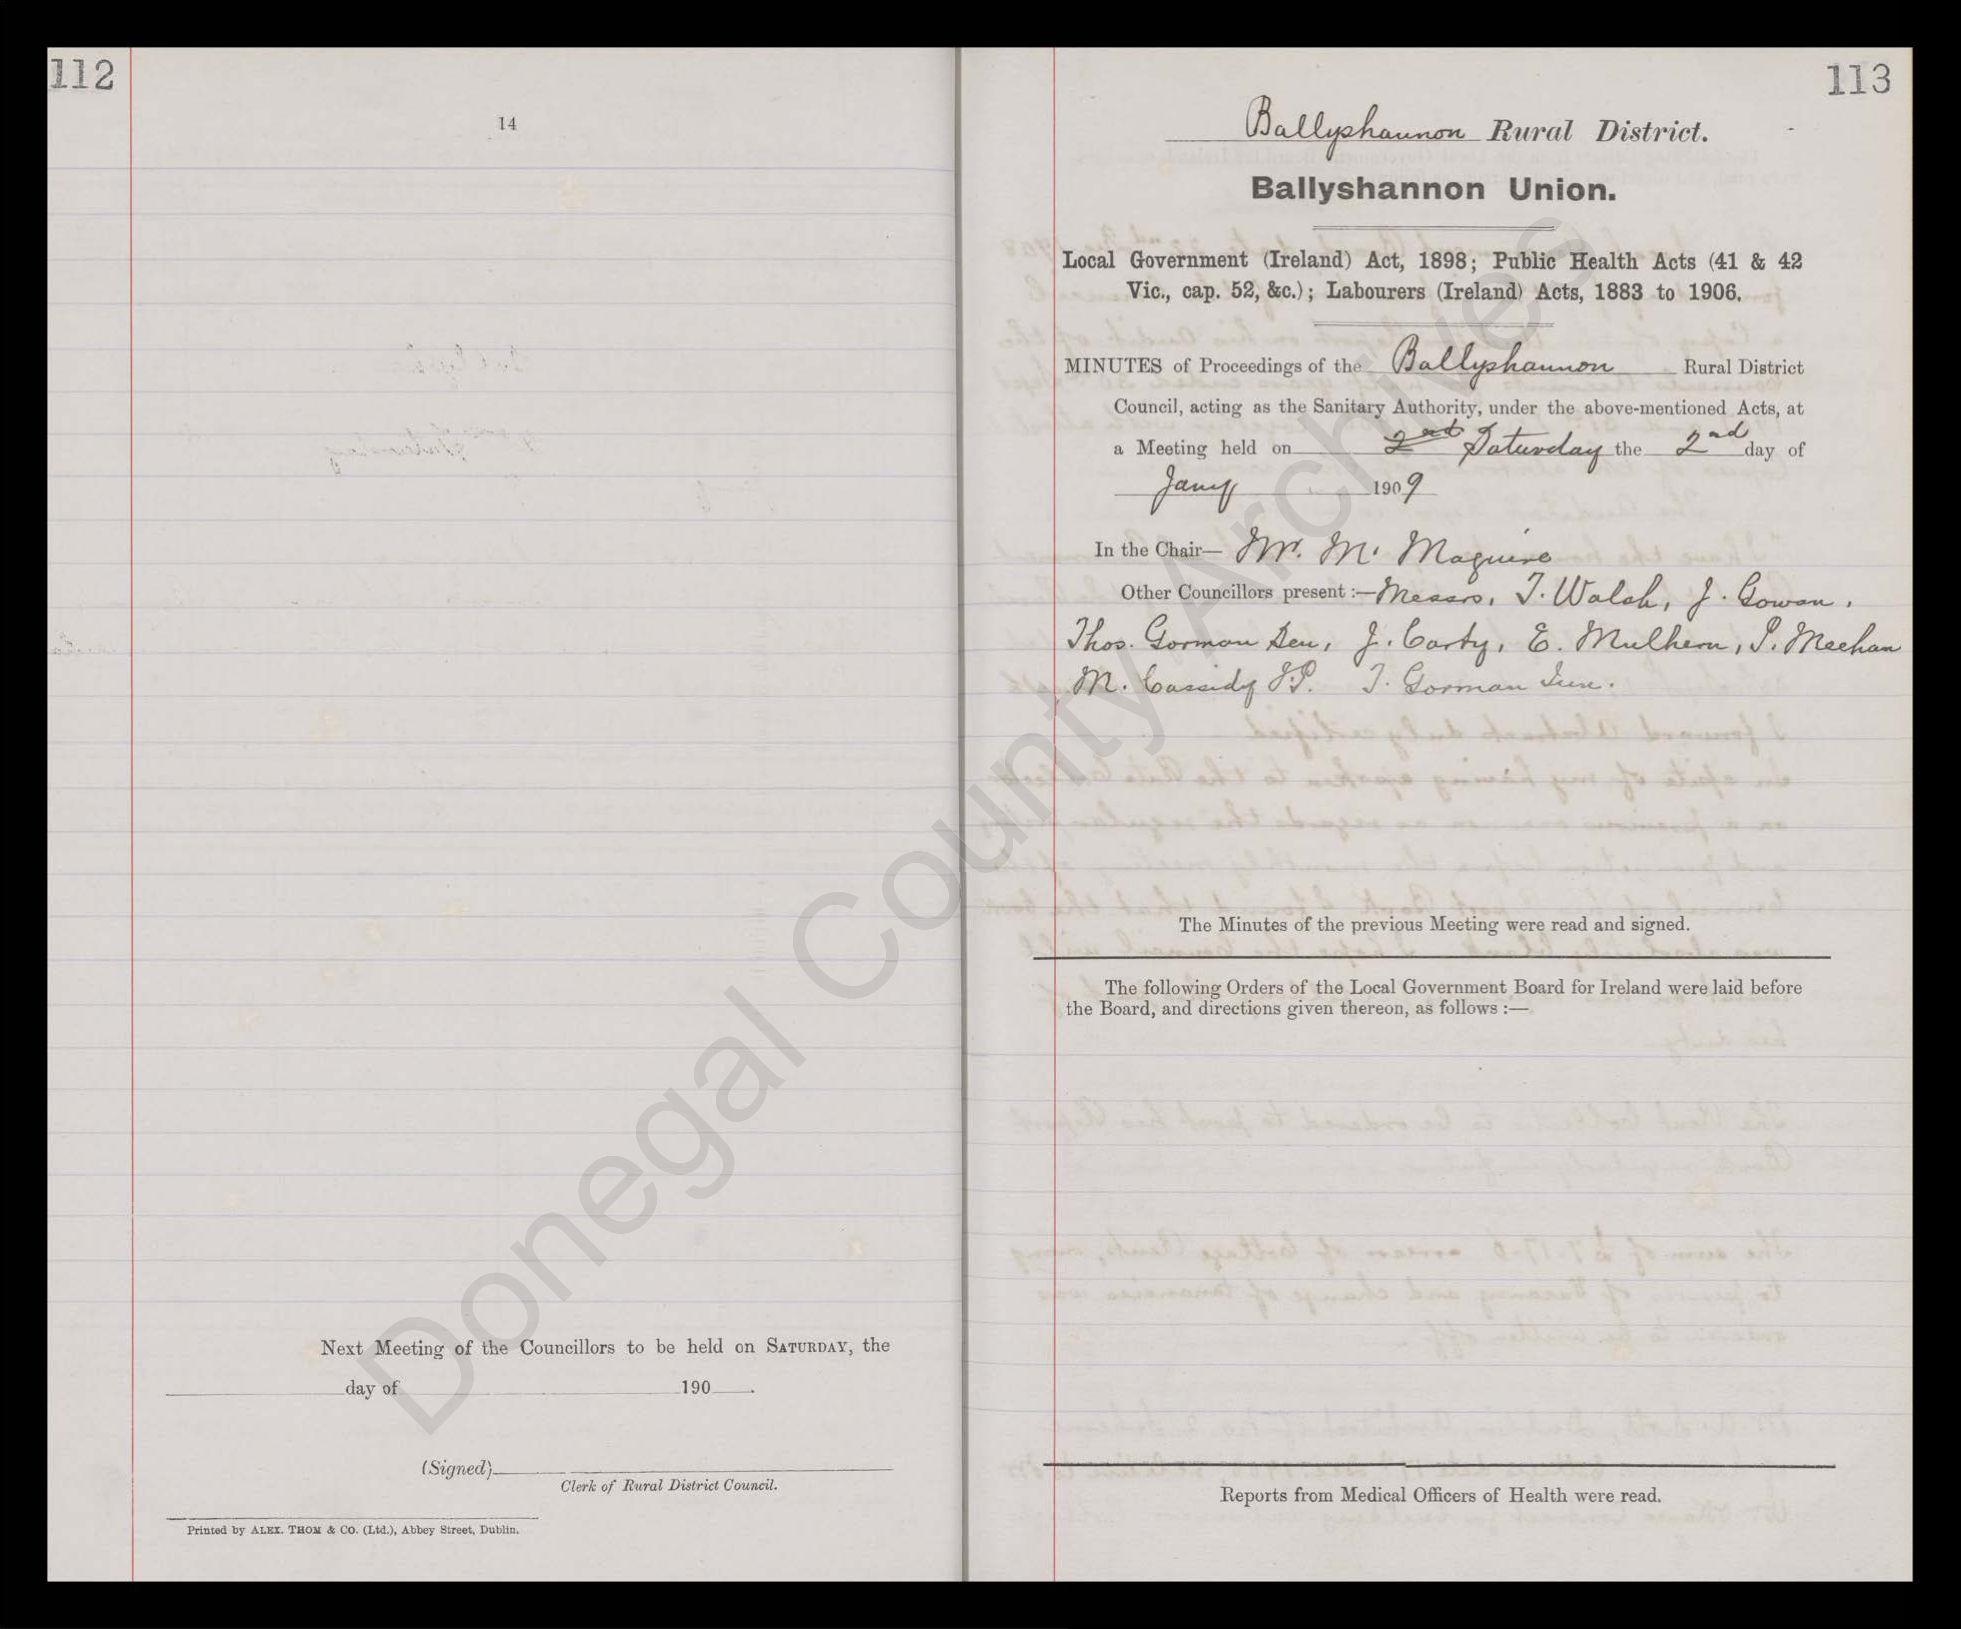 112
14
Next Meeting of the Councillors to be held on SATURDAY, the
day of 190 .
(Signed)
Clerk of Rural District Council.
Printed by ALEX. THOM & CO. (Ltd.), Abbey Street, Dublin.
113
Ballyshannon Rural District.
Ballyshannon Union.
Local Government (Ireland) Act, 1898; Public Health Acts (41 & 42
Vic., cap. 52, &c.); Labourers (Ireland) Acts, 1883 to 1906.
MINUTES of Proceedings of the Ballyshannon Rural District
Council, acting as the Sanitary Authority, under the above-mentioned Acts, at
a Meeting held on 2nd Saturday the 2nd day of
Jany 1909
In the Chair— Mr. M. Maguire
Other Councillors present :— Messrs, T. Walsh, J. Gowan,
Thos. Gorman Sen, J. Carty, E. Mulhern, P. Meehan
M. Cassidy JP. T. Gorman Jun.
The Minutes of the previous Meeting were read and signed.
The following Orders of the Local Government Board for Ireland were laid before
the Board, and directions given thereon, as follows :—
Reports from Medical Officers of Health were read.
Donegal County Archives